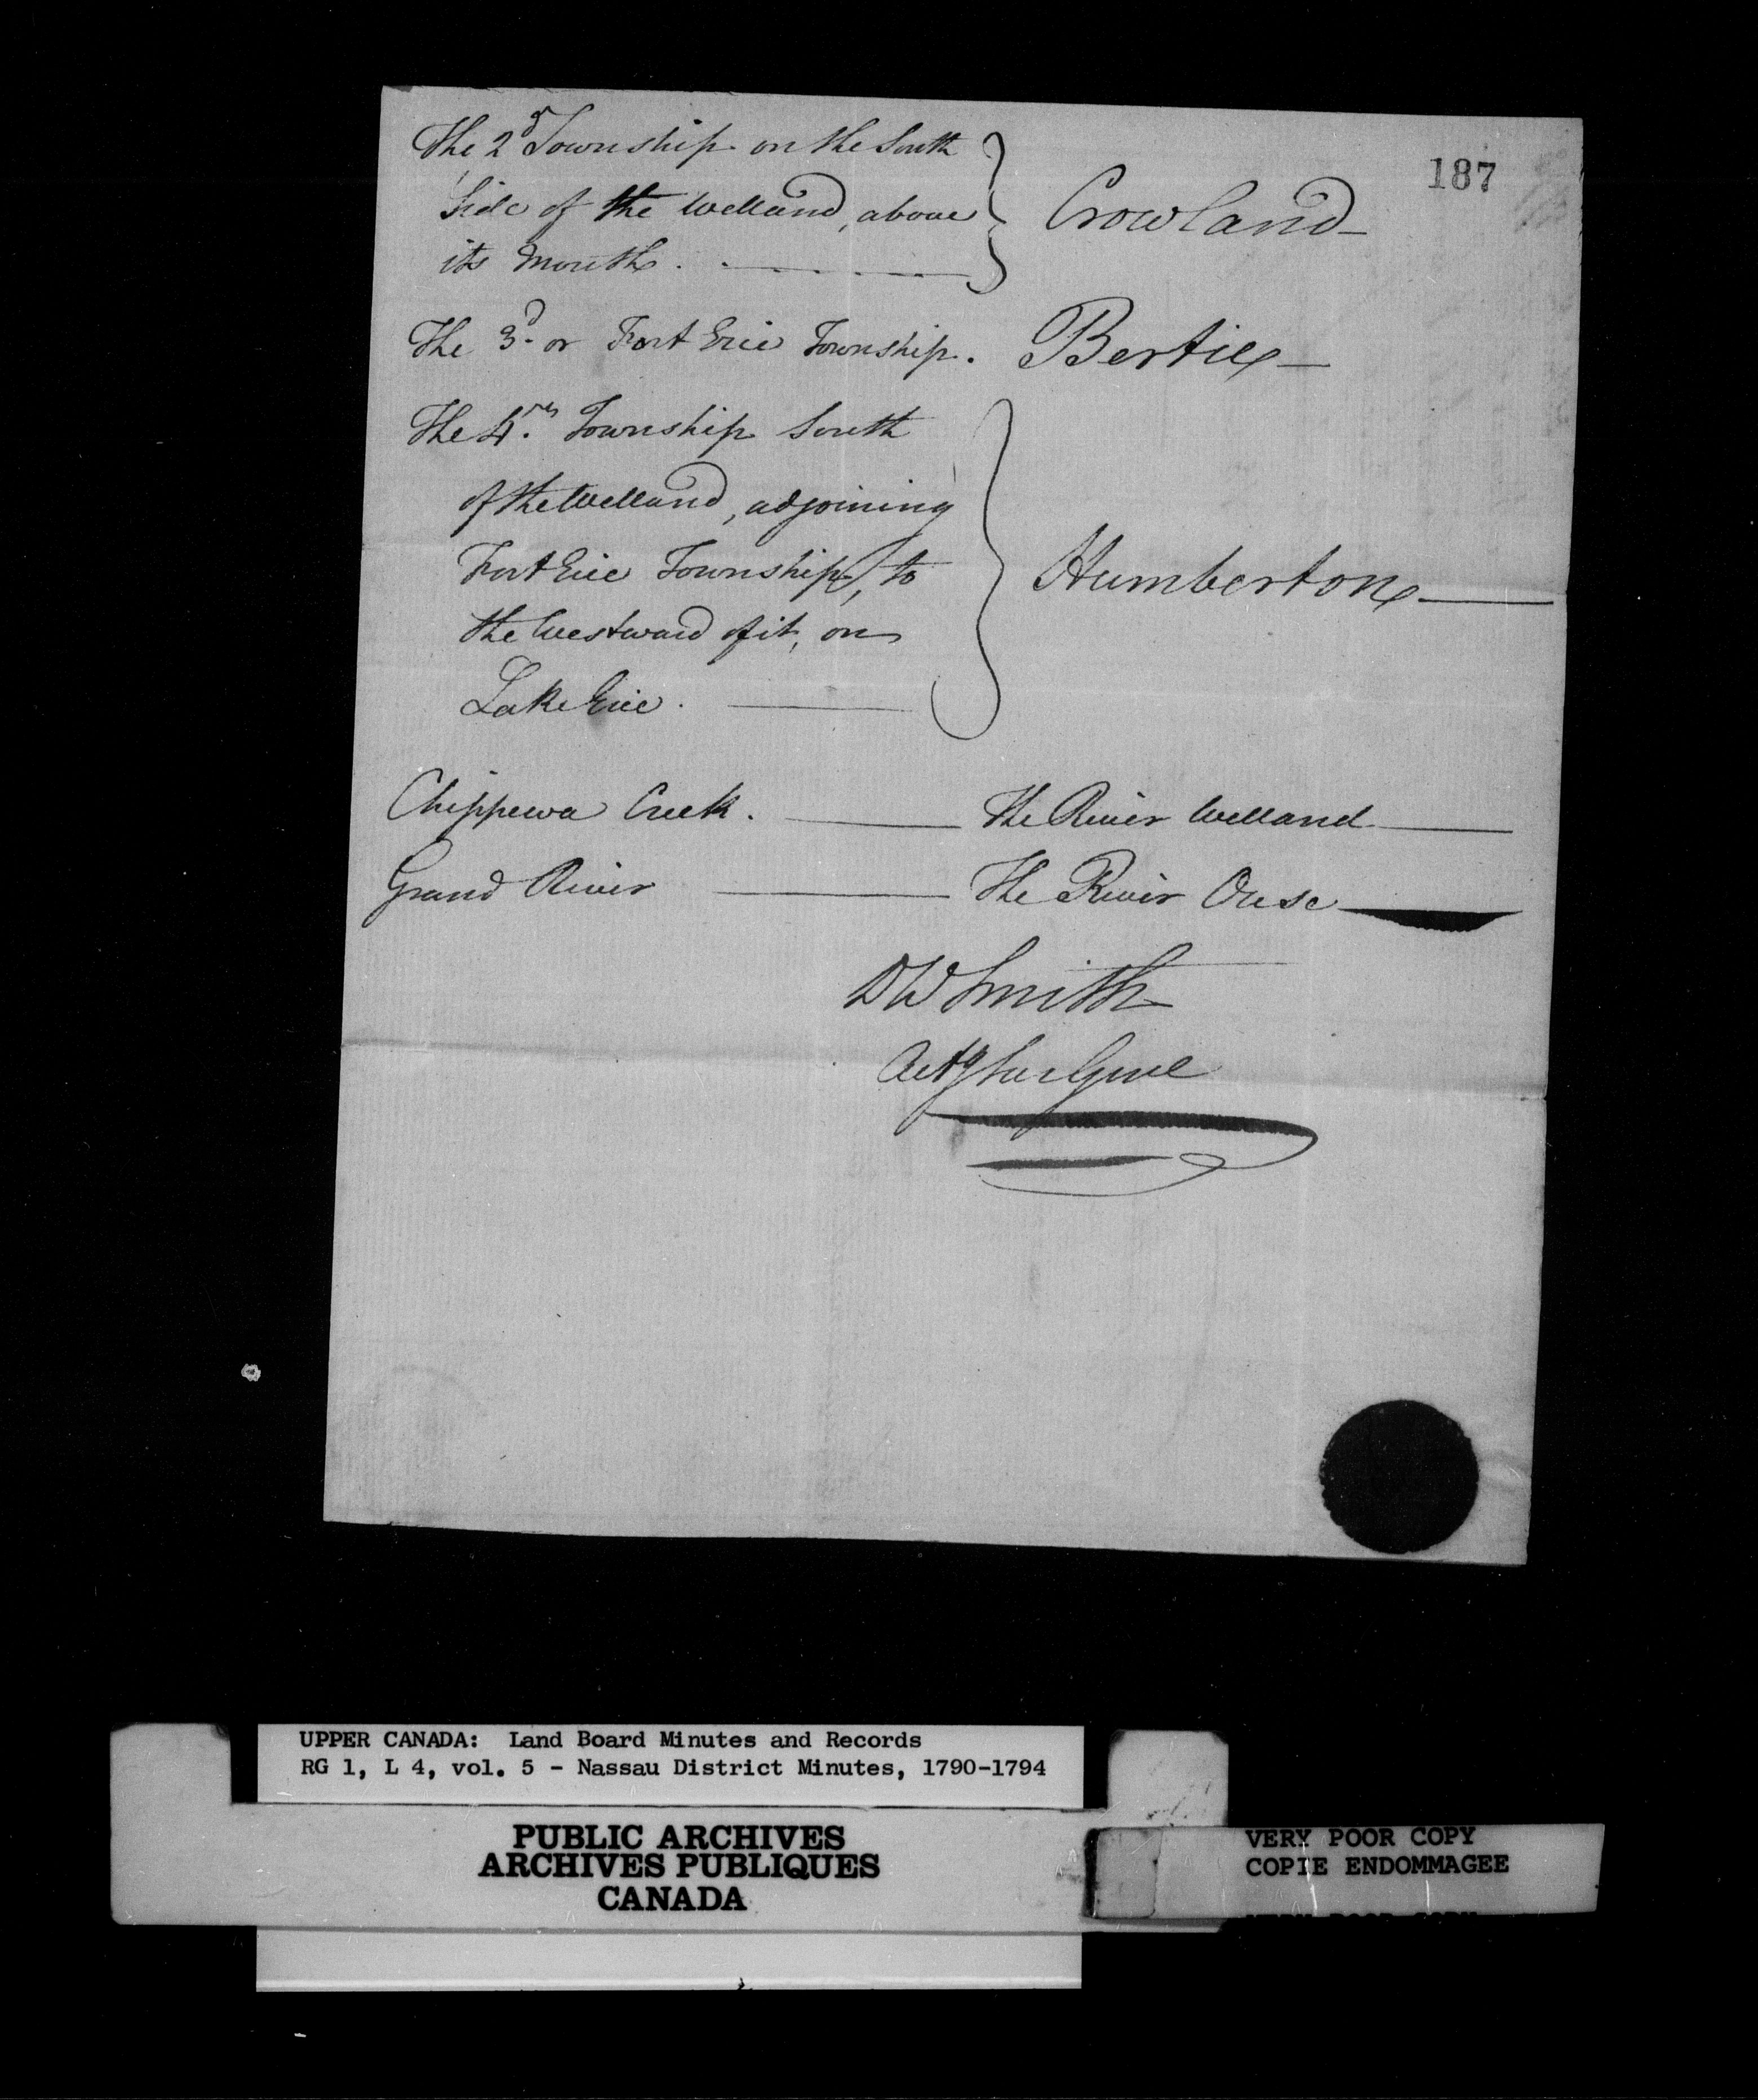 187
The 2d Township on the South
Side of the Welland, above
its Mouth.
Crowland
The 3d. or Fort Erie Township. Bertie
The 4th. Township South
of the Welland, adjoining
Fort Erie Township, to
the Westward of it, on
Lake Erie.
Humberton
Chippewa Creek. The River Welland
Grand River The River Ouse
DW Smith
Actg Sur Genl
UPPER CANADA: Land Board Minutes and Records
RG 1, L 4, vol. 5 - Nassau District Minutes, 1790-1794
PUBLIC ARCHIVES
ARCHIVES PUBLIQUES
CANADA
VERY POOR COPY
COPIE ENDOMMAGEE
VERY POOR COPY